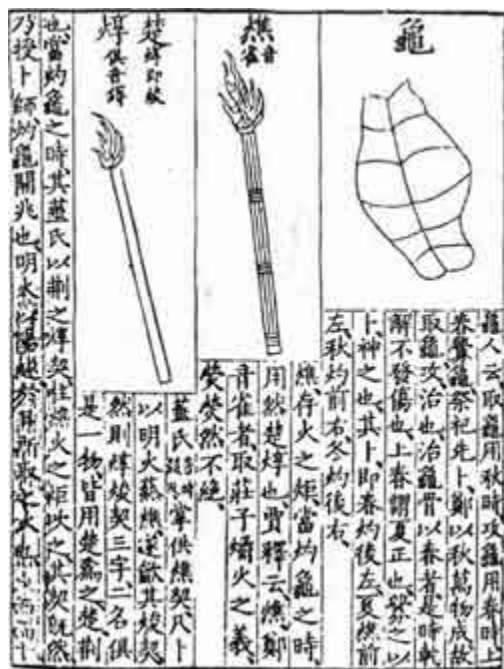 龜
龜人云取龜用秋時攻龜用春時上
春釁龜祭祀先卜鄭以秋萬物成故
取龜攻治也治龜骨以春者是時乾
解不發傷也上春謂夏正也釁之以
卜神之也其卜即春灼後左夏灼前
左秋灼前右冬灼後右
燋音雀
燋存火之炬當灼龜之時
用然楚焞也賈釋云燋鄭
音雀者取莊子爝火之義
熒熒然不絶
楚焞焞即焌俱音
菙氏掌供燋契凡卜
以明火爇燋遂龡其焌契
然則焞焌契三字二名俱
是一物皆用楚爲之楚荆
也當灼龜之時其菙氏以荆之焞契柱燋火之炬吹之其契既然
乃授卜師灼龜開兆也明火以陽燧於日所取之火也